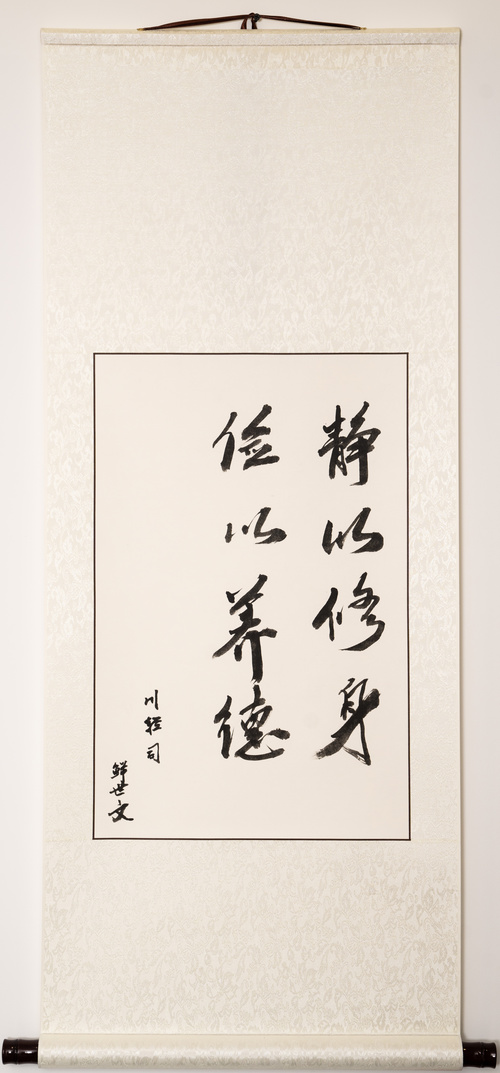 静以修身
俭以养德
川轻司
鲜世文